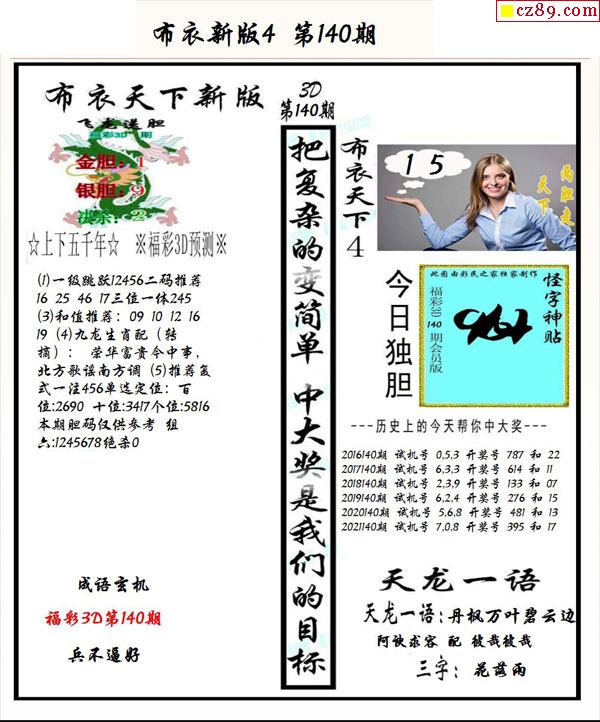 cz89.com
布衣新版4 第140期
布衣天下新版
飞龙送胆
福彩3D 期
金胆：1
银胆：9
决杀：2
☆上下五千年☆ ※福彩3D预测※
(1)一级跳跃12456二码推荐
16 25 46 17三位一体245
(3)和值推荐：09 10 12 16
19 (4)九龙生肖配（转
摘）：荣华富贵令中事，
北方歌谣南方调 (5)推荐复
式一注456单选定位：百
位:2690 十位:3417个位:5816
本期胆码仅供参考 组
六:1245678绝杀0
成语玄机
福彩3D第140期
兵不逼好
3D
第140期
把复杂的变简单 中大奖是我们的目标
布衣天下4
15
两胆走天下
今日独胆
此图由彩民之家独家制作
福彩3D 140 期会员版
怪字神贴
---历史上的今天帮你中大奖---
2016140期 试机号 0,5,3 开奖号 787 和 22
2017140期 试机号 6,3,3 开奖号 614 和 11
2018140期 试机号 2,3,9 开奖号 133 和 07
2019140期 试机号 6,2,4 开奖号 276 和 15
2020140期 试机号 5,6,8 开奖号 481 和 13
2021140期 试机号 7,0,8 开奖号 395 和 17
天龙一语
天龙一语:丹枫万叶碧云边
阿谀求容 配 彼哉彼哉
三字：花蕊雨